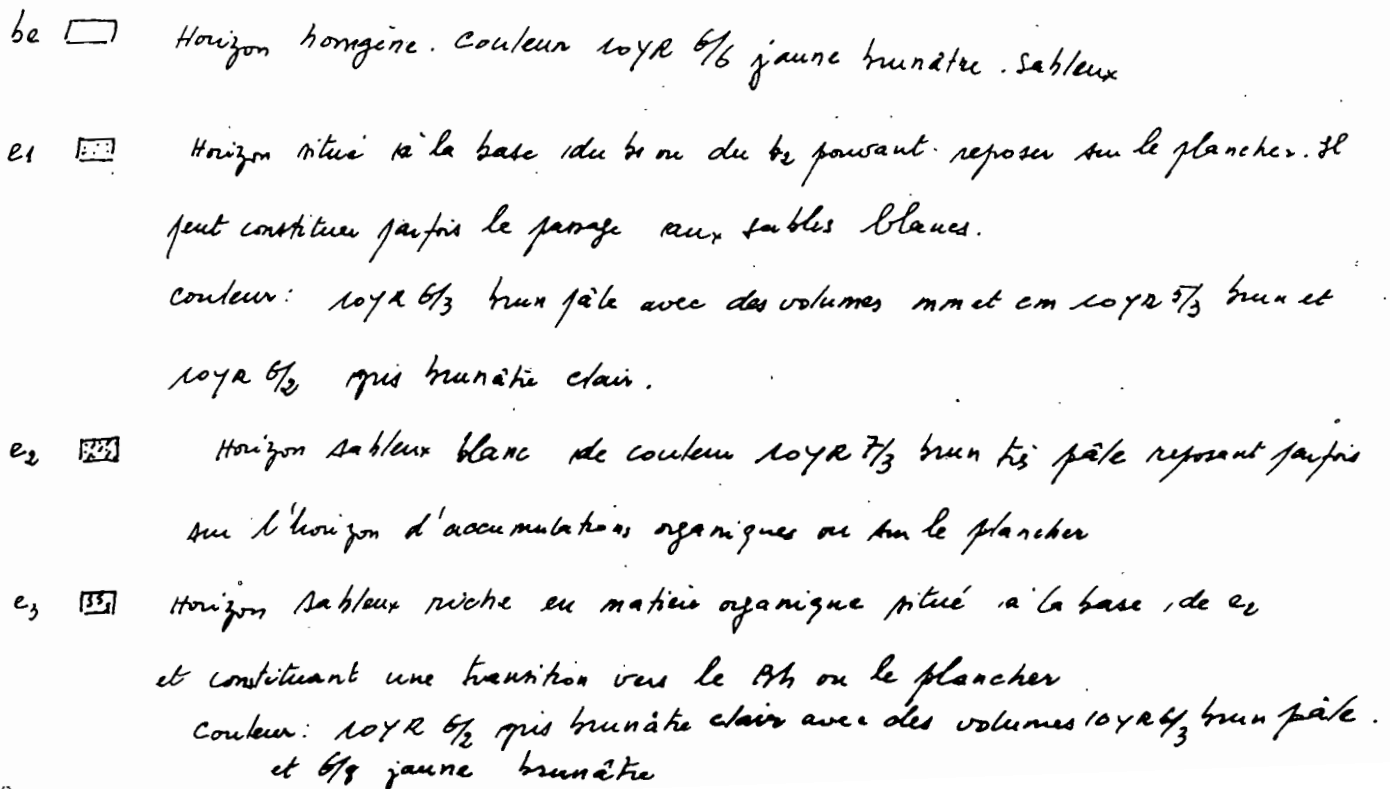 be Horizon homgène. Couleur 10YR 6/6 jaune brunâtre. Sableux
e1 Horizon situé à la base du b1 ou du b2 pouvant reposer sur le plancher. Il
peut constituer parfois le passage aux sables blancs.
Couleur: 10YR 6/3 brun pâle avec des volumes mm et cm 10YR 5/3 brun et
10YR 6/2 gris brunâtre clair.
e2 Horizon sableux blanc de couleur 10YR 7/3 brun très pâle reposant parfois
sur l'horizon d'accumulations organiques ou sur le plancher
e3 Horizon sableux riche en matière organique situé à la base de e2
et constituant une transition vers le Bh ou le plancher
Couleur: 10YR 6/2 gris brunâtre clair avec des volumes 10YR 6/3 brun pâle.
et 6/8 jaune brunâtre